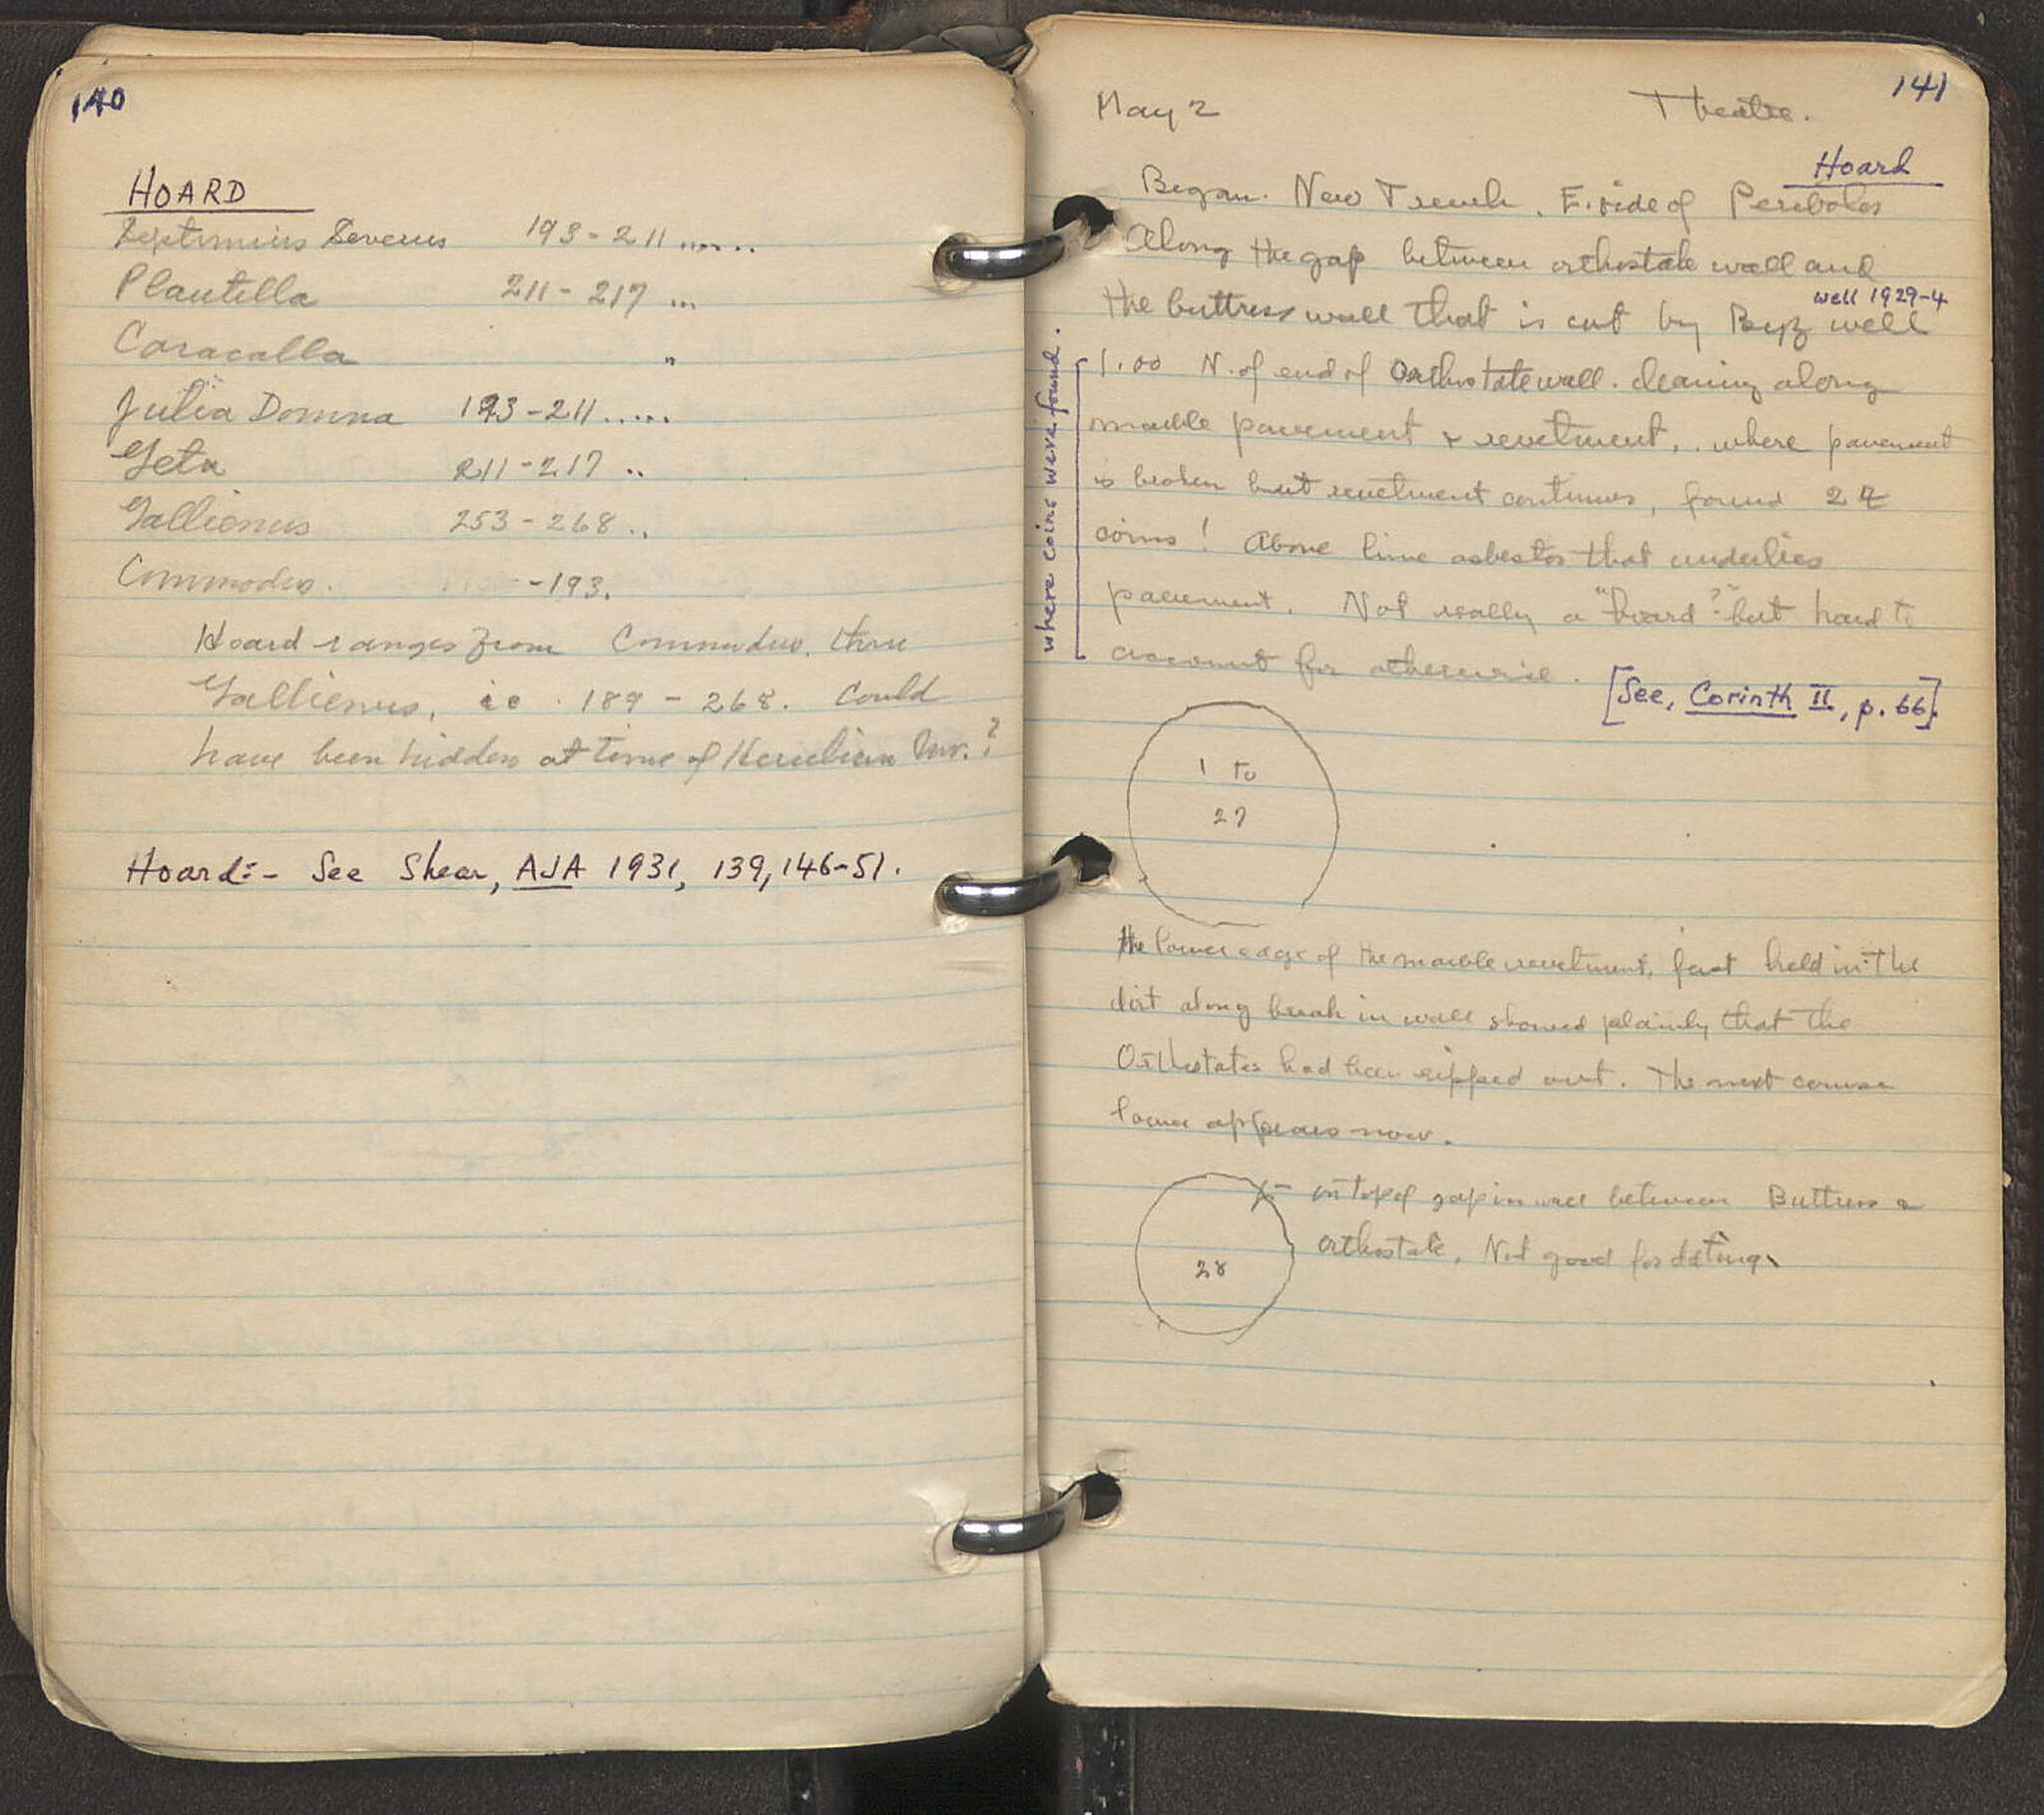 140
HOARD
Septimius Severus 193-211 ......
Plautilla 211-217 ...
Caracalla "
Julia Domna 193-211.....
Geta 211-217 ..
Gallienus 253-268..
Commodus. -193.
Hoard ranges from Commodus. thru
Gallienus, ie. 189-268. Could
have been hidden at time of Herulian Inv.?
Hoard:- See Shear, AJA 1931, 139,146-51.
141
May 2 Theatre.
Hoard
Began. New Trench. E. side of Peribolos
Along the gap between orthostate wall and
well 1929-4
the buttress wall that is cut by Byz well
1.00 N. of end of Orthostate wall. cleaning along
marble pavement & revetment, . where pavement
is broken but revetment continues, found 27
coins! Above lime asbestos that underlies
pavement. Not really a "hoard?" but hard to
account for otherwise.
where coins were found.
[See, Corinth II, p. 66].
1 to
27
the lower edge of the marble revetment, fast held in the
dirt along break in wall showed plainly that the
Orthostates had been ripped out. The next course
lower appears now.
on top of gap in wall between Buttress &
orthostate. Not good for dating.
28